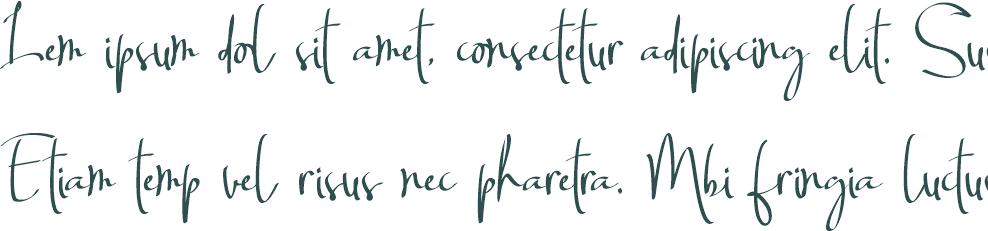 Lem ipsum dol sit amet, consectetur adipiscing elit. Sus
Etiam temp vel risus nec pharetra. Mbi fringia luctus